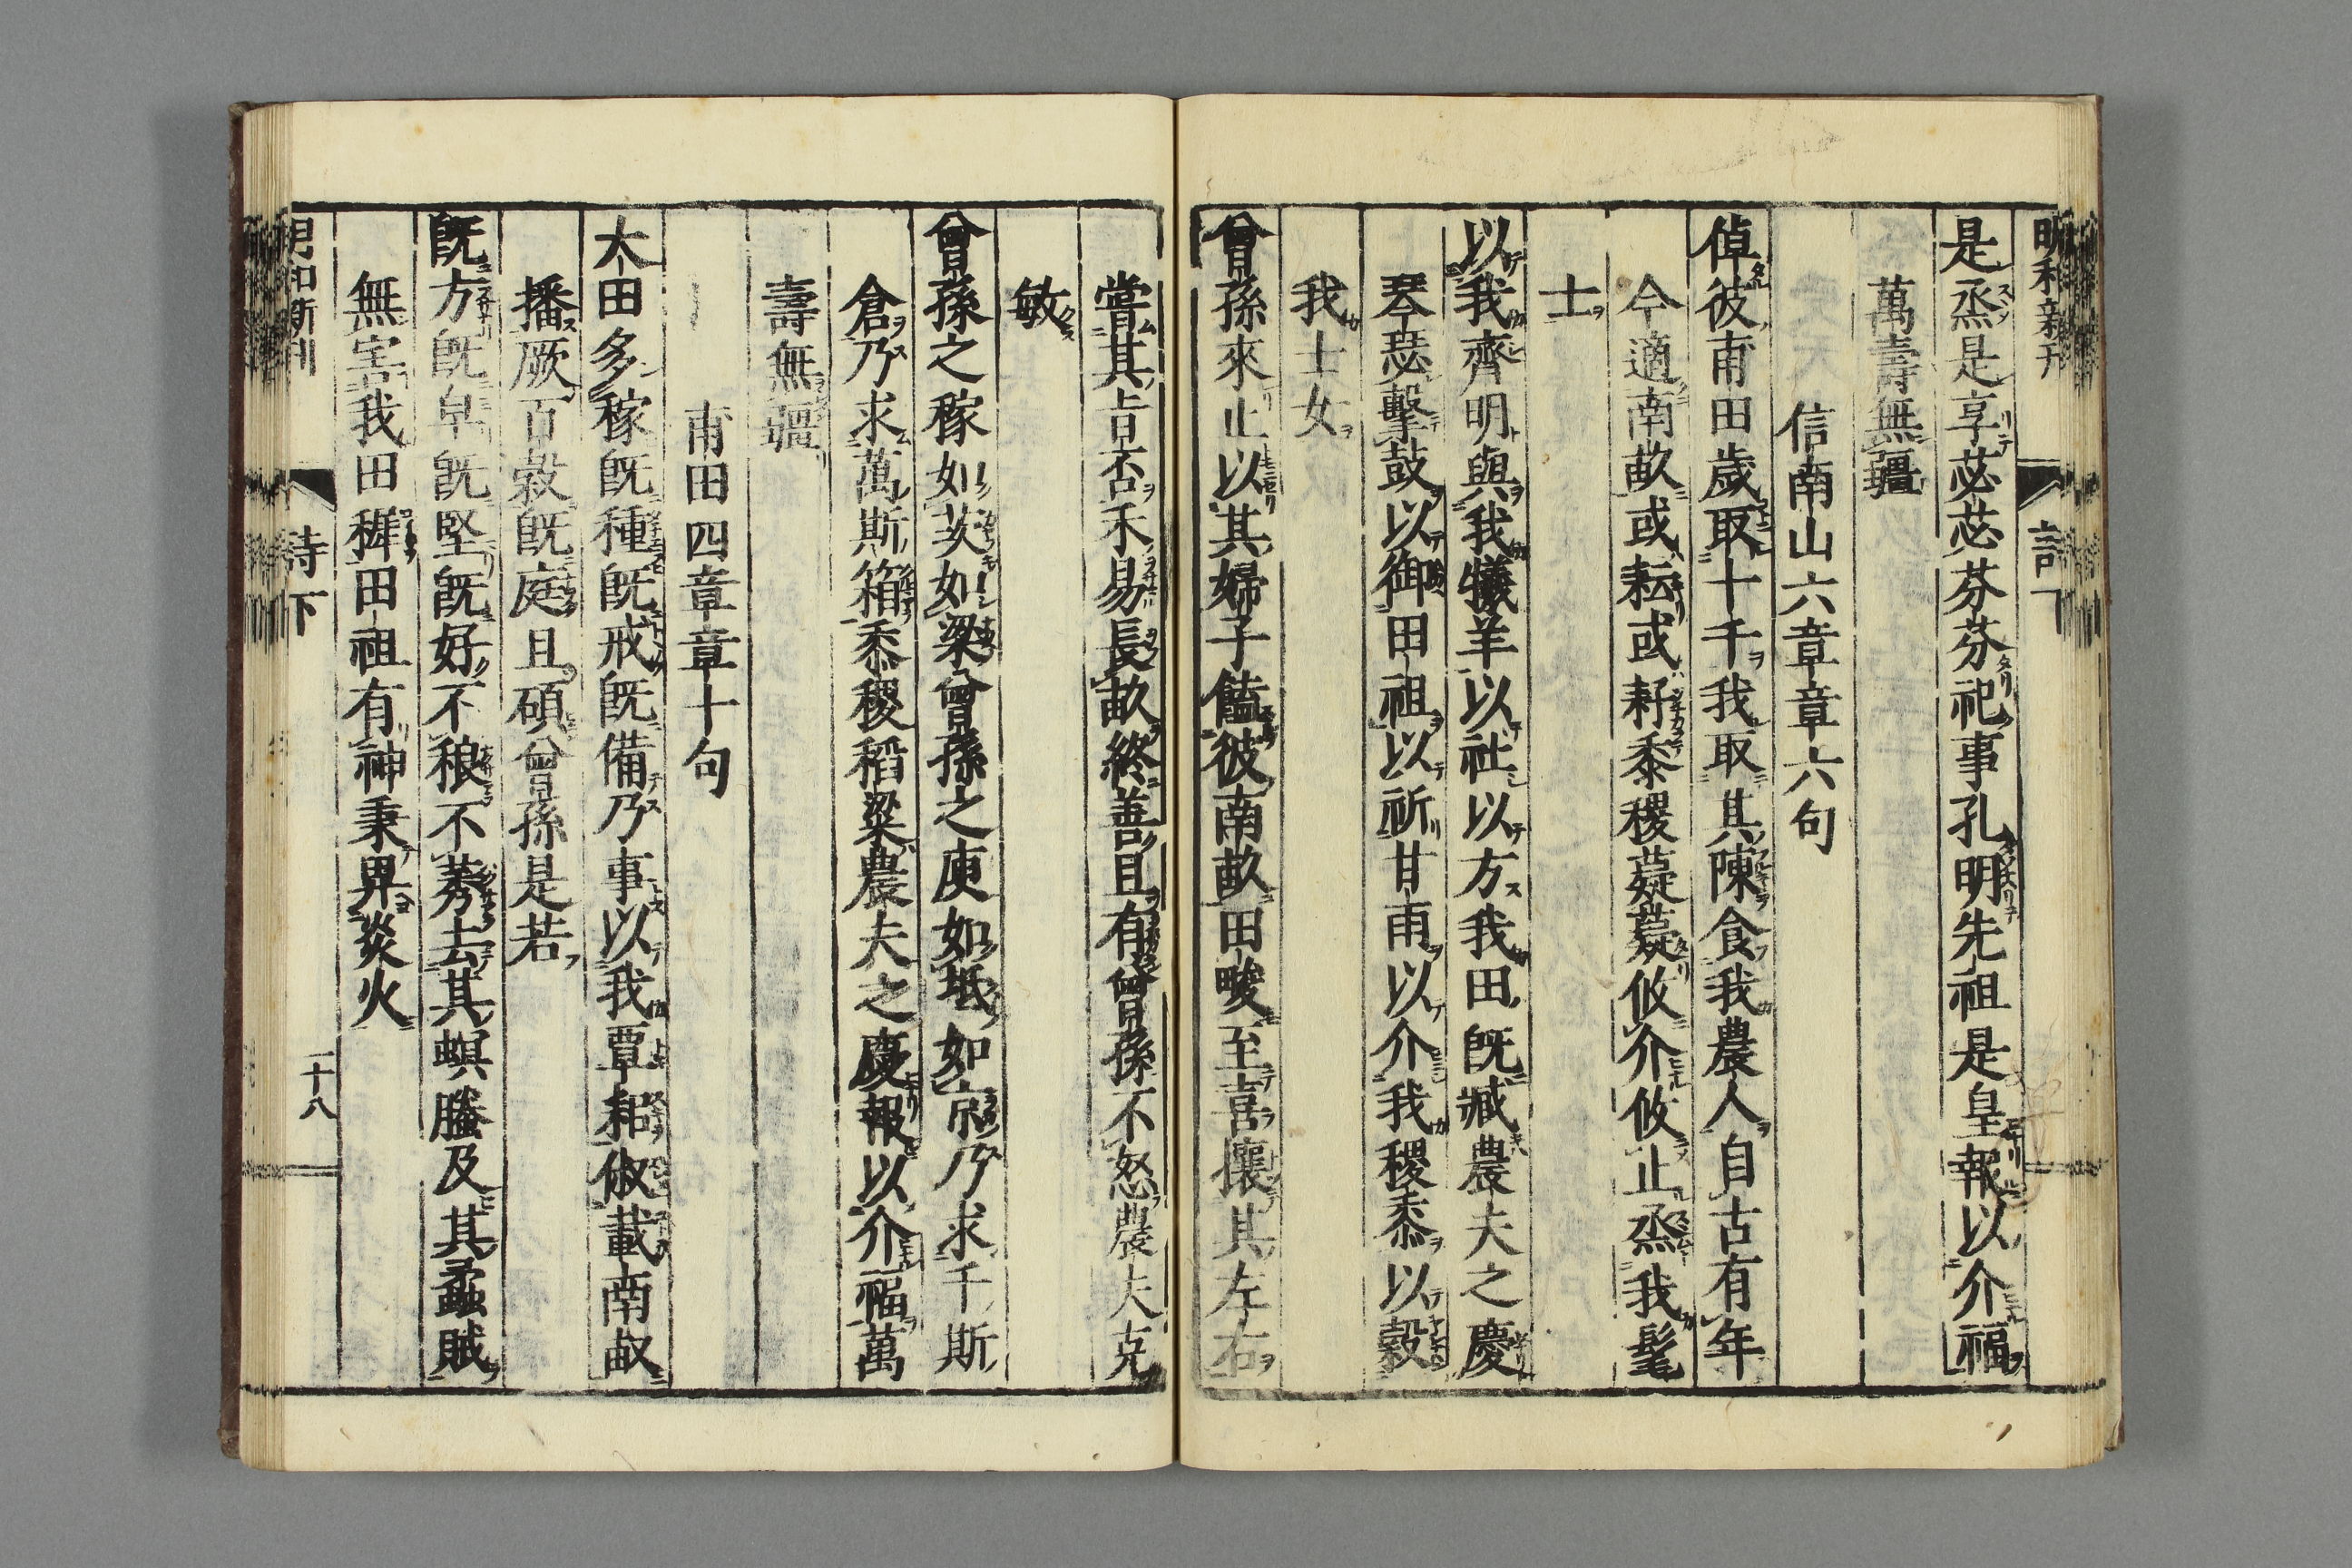 明和新刊
詩下
是烝是享苾苾芬芬祀事孔明先祖是皇報以介福
萬壽無疆
信南山六章章六句
倬彼甫田歲取十千我取其陳食我農人自古有年
今適南畝或耘或耔黍稷薿薿攸介攸止烝我髦
士
以我齊明與我犧羊以社以方我田既臧農夫之慶
琴瑟擊鼓以御田祖以祈甘雨以介我稷黍以穀
我士女
曾孫來止以其婦子饁彼南畝田畯至喜攘其左右
嘗其旨否禾易長畝終善且有曾孫不怒農夫克
敏
曾孫之稼如茨如梁曾孫之庾如坻如京乃求千斯
倉乃求萬斯箱黍稷稻粱農夫之慶報以介福萬
壽無疆
甫田四章章十句
大田多稼既種既戒既備乃事以我覃耜俶載南畝
播厥百穀既庭且碩曾孫是若
既方既皁既堅既好不稂不莠去其螟螣及其蟊賊
無害我田稺田祖有神秉畀炎火
明和新刊
詩下
二十八